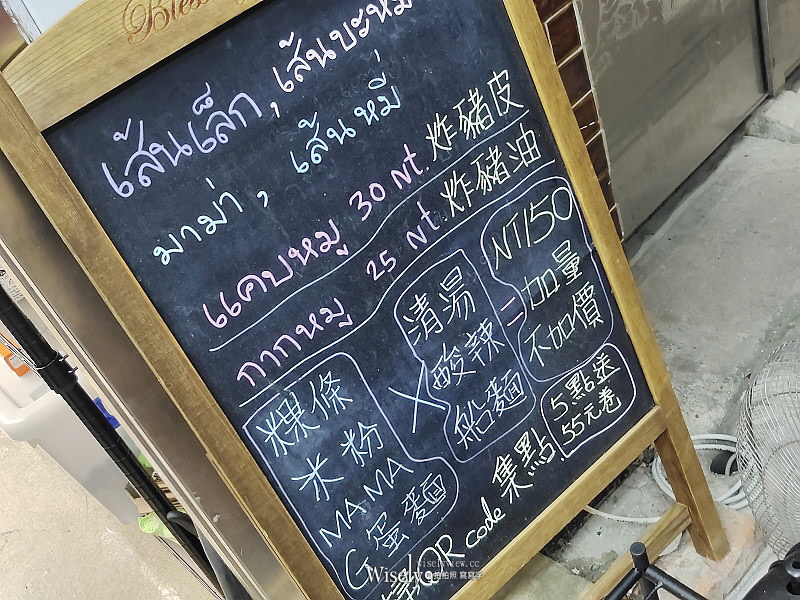 Bless
เส้นเล็ก, เส้นบะหมี่
มาม่า, เส้นหมี่
แคบหมู 30 Nt. 炸豬皮
กากหมู 25 Nt. 炸豬油
粿條
米粉
MAMA
蛋麵
X
清湯
酸辣
船麵
=
NT150
加量
不加價
QR code 集點
5點送
55元卷
Wisely
wiselyview.cc
拍拍照 寫寫字